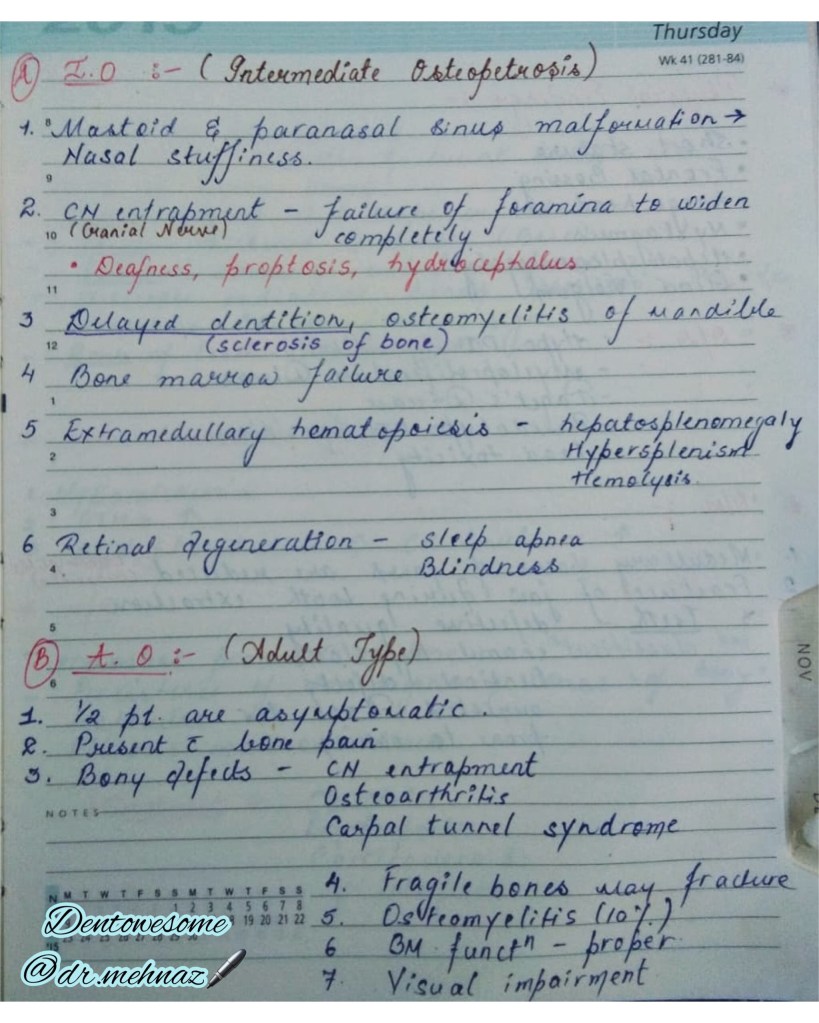 2015
Thursday
Wk 41 (281-84)
(A) I.O :- (Intermediate Osteopetrosis)
1. Mastoid & paranasal sinus malformation →
Nasal stuffiness.
2. CN entrapment - failure of foramina to widen
(Cranial Nerve) completely
• Deafness, proptosis, hydrocephalus
3 Delayed dentition, osteomyelitis of mandible
(sclerosis of bone)
4 Bone marrow failure.
5 Extramedullary hematopoiesis - hepatosplenomegaly
Hypersplenism
Hemolysis.
6 Retinal degeneration - sleep apnea
Blindness
(B) A.O :- (Adult Type)
1. 1/2 pt. are asymptomatic.
2. Present c̄ bone pain
3. Bony defects - CN entrapment
Osteoarthritis
Carpal tunnel syndrome
NOTES
4. Fragile bones may fracture
5. Osteomyelitis (10%)
6 BM functn - proper.
7. Visual impairment
8
9
10
11
12
1
2
3
4
5
6
NOV
M T W T F S S M T W T F S S
1 2 3 4 5 6 7 8
19 20 21 22
Dentowesome
@dr.mehnaz